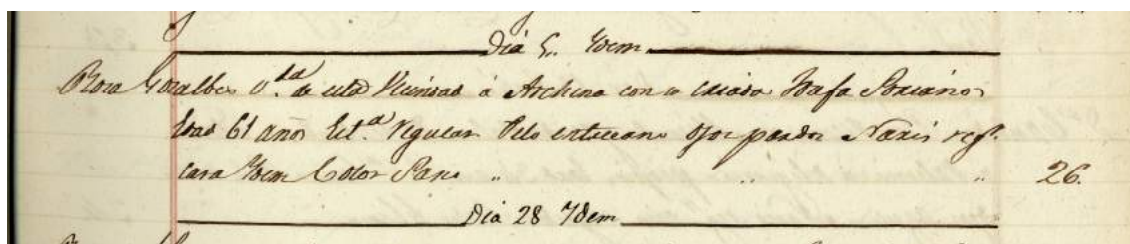 Dia 5. Ydem
Rosa Gozalbes V.da de esta Vecindad á Archena con su criada Pafa Soriano
Edad 61 años Est.a regular Pelo entrecano Ojos pardos Nariz reg.r
cara Ydem Color Sano " " " 26.
Dia 28 Ydem